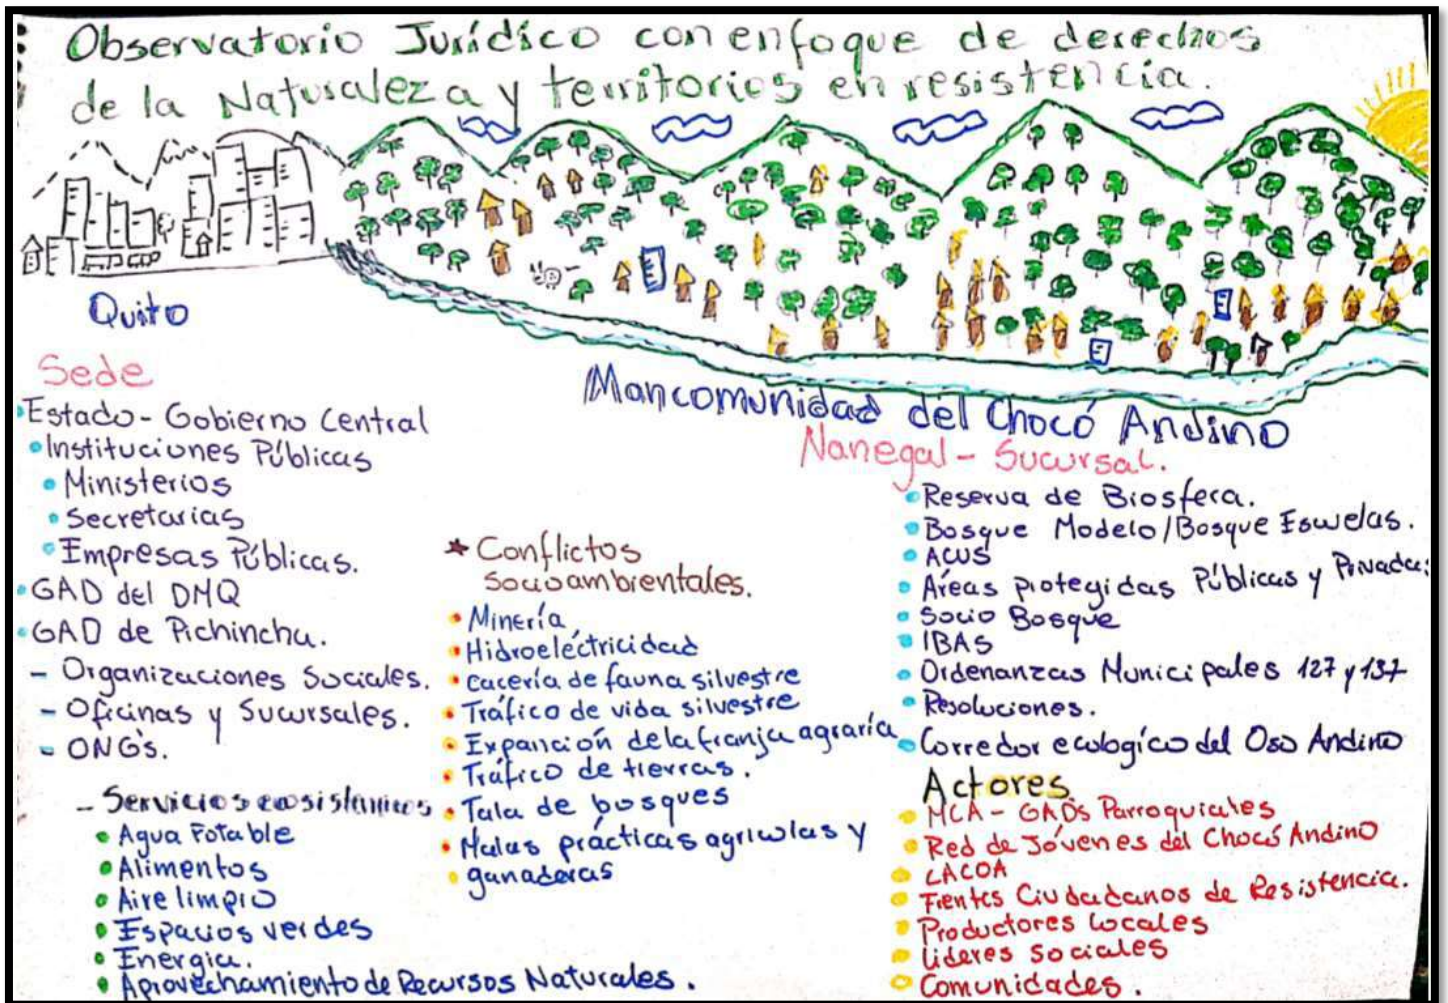 Observatorio Jurídico con enfoque de derechos
de la Naturaleza y territorios en resistencia.
Quito
Sede
Estado - Gobierno Central
Instituciones Públicas
Ministerios
Secretarias
Empresas Públicas.
GAD del DMQ
GAD de Pichincha.
- Organizaciones Sociales.
- Oficinas y Sucursales.
- ONG's.
- Servicios ecosistémicos
Agua Potable
Alimentos
Aire limpio
Espacios verdes
Energia.
Aprovechamiento de Recursos Naturales.
* Conflictos
socioambientales.
Minería
Hidroeléctricidad
cacería de fauna silvestre
Tráfico de vida silvestre
Expanción de la franja agraría
Tráfico de tierras.
Tala de bosques
Malas prácticas agricolas y
ganaderas
Mancomunidad del Chocó Andino
Nanegal - Sucursal.
Reserva de Biosfera.
Bosque Modelo/Bosque Escuelas.
ACUS
Áreas protegidas Públicas y Privadas
Socio Bosque
IBAS
Ordenanzas Municipales 127 y 137
Resoluciones.
Corredor ecologíco del Oso Andino
Actores
MCA - GADs Parroquiales
Red de Jóvenes del Chocó Andino
CACOA
Frentes Ciudadanos de Resistencia.
Productores locales
lideres sociales
Comunidades.